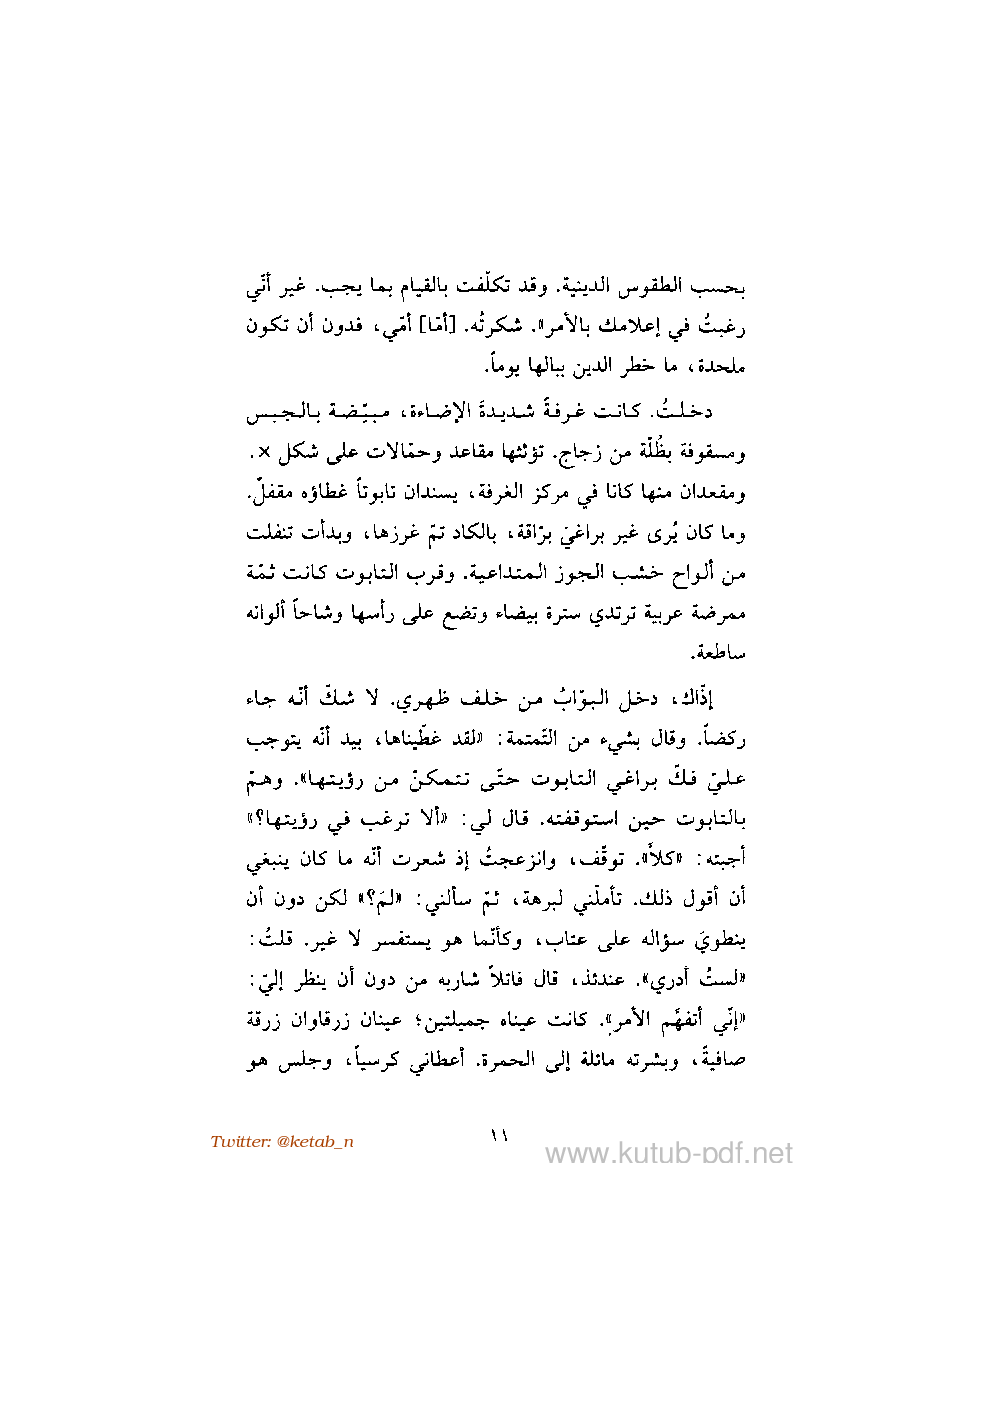 بحسب الطقوس الدينية. وقد تكلّفت بالقيام بما يجب. غير أنّي
رغبتُ في إعلامك بالأمر». شكرتُه. [أمّا] أمّي، فدون أن تكون
ملحدة، ما خطر الدين ببالها يوماً.
دخلتُ. كانت غرفةً شديدةَ الإضاءة، مبيّضة بالجبس
ومسقوفة بظُلّة من زجاج. تؤثثها مقاعد وحمّالات على شكل ×.
ومقعدان منها كانا في مركز الغرفة، يسندان تابوتاً غطاؤه مقفلّ.
وما كان يُرى غير براغيَ برّاقة، بالكاد تمّ غرزها، وبدأت تنفلت
من ألواح خشب الجوز المتداعية. وقرب التابوت كانت ثمّة
ممرضة عربية ترتدي سترة بيضاء وتضع على رأسها وشاحاً ألوانه
ساطعة.
إذّاك، دخل البوّابُ من خلف ظهري. لا شكّ أنّه جاء
ركضاً. وقال بشيء من التّمتمة: «لقد غطّيناها، بيد أنّه يتوجب
عليّ فكّ براغي التابوت حتّى تتمكنّ من رؤيتها». وهمّ
بالتابوت حين استوقفته. قال لي: «ألا ترغب في رؤيتها؟»
أجبته: «كلاّ». توقّف، وانزعجتُ إذ شعرت أنّه ما كان ينبغي
أن أقول ذلك. تأملّني لبرهة، ثمّ سألني: «لمَ؟» لكن دون أن
ينطويَ سؤاله على عتاب، وكأنّما هو يستفسر لا غير. قلتُ:
«لستُ أدري». عندئذ، قال فاتلاً شاربه من دون أن ينظر إليّ:
«إنّي أتفهَّم الأمر». كانت عيناه جميلتين؛ عينان زرقاوان زرقة
صافيةً، وبشرته مائلة إلى الحمرة. أعطاني كرسياً، وجلس هو
١١
Twitter: @ketab_n
www.kutub-pdf.net